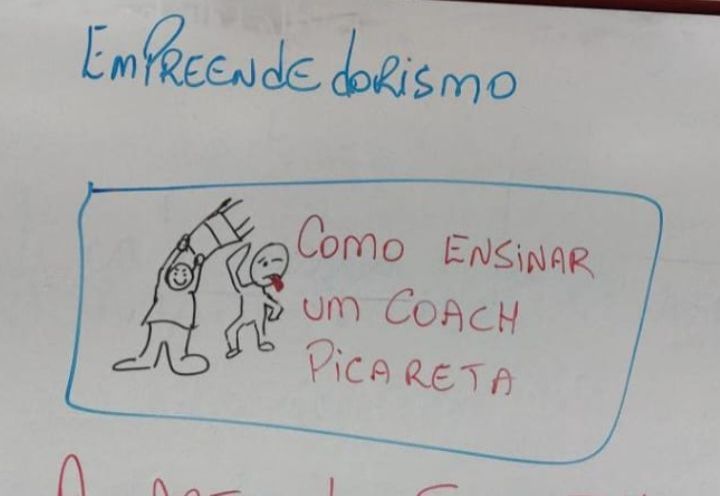 EmPREENdEdoRismo
Como ENSiNAR
um COACH
PiCARETA